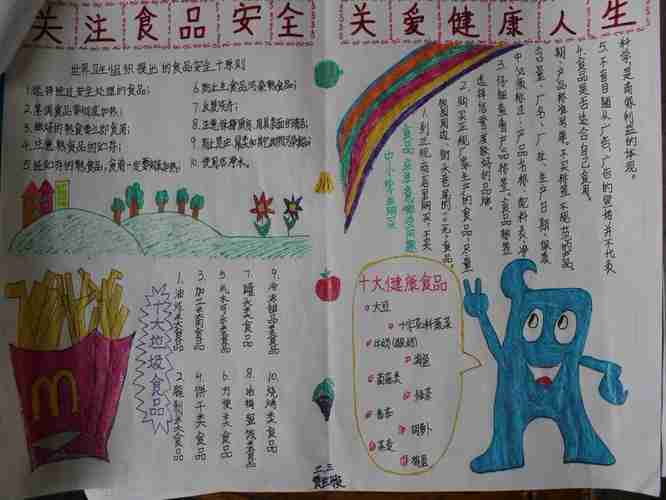 关注食品安全 关爱健康人生
世界卫生组织提出的食品安全十原则
1.选择经过安全处理的食品;
2.烹调食品要彻底加热;
3.做好的熟食要立即食用;
4.注意熟食品的贮存;
5.经贮存的熟食品,食用一定要彻底加热;
6.防止生食品污染熟食品;
7.反复洗手;
10.使用洁净水。
中小学生购买
食品应注意哪些问题
1.到正规商店里购买,不买
校园周边、街头巷尾的“三无”食品。
2.购买正规厂家生产的食品,尽量
选择信誉度较好的品牌
3.仔细查看产品标签。食品标签
中必须标注:产品名称、配料表、净
含量、厂名、厂址、生产日期、保质
期、产品标准号等。不买标签不规范的产品
4.食品是否适合自己食用。
5.不盲目随从广告,广告的宣传并不代表
科学,是商家利益的体现。
十大垃圾食品
1.油炸类食品
2.腌制类食品
3.加工类肉食品
4.饼干类食品
5.汽水可乐类食品
6.方便类食品
7.罐头类食品
10.烧烤类食品
十大健康食品
大豆
十字花科蔬菜
牛奶(酸奶)
海鱼
菌菇类
番茄
胡萝卜
M